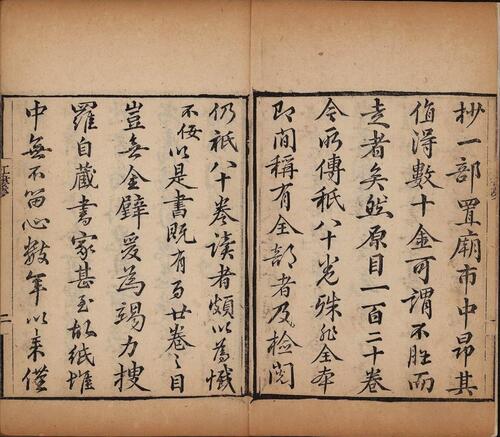 抄一部置廟市中昂其
值得數十金可謂不脛而
走者矣然原目一百二十卷
今所傳祇八十卷殊非全本
即間稱有全部者及檢閱
仍祇八十卷讀者頗以為憾
不佞以是書既有百廿卷之目
豈無全璧爰為竭力搜
羅自藏書家甚至故紙堆
中無不留心數年以來僅
二